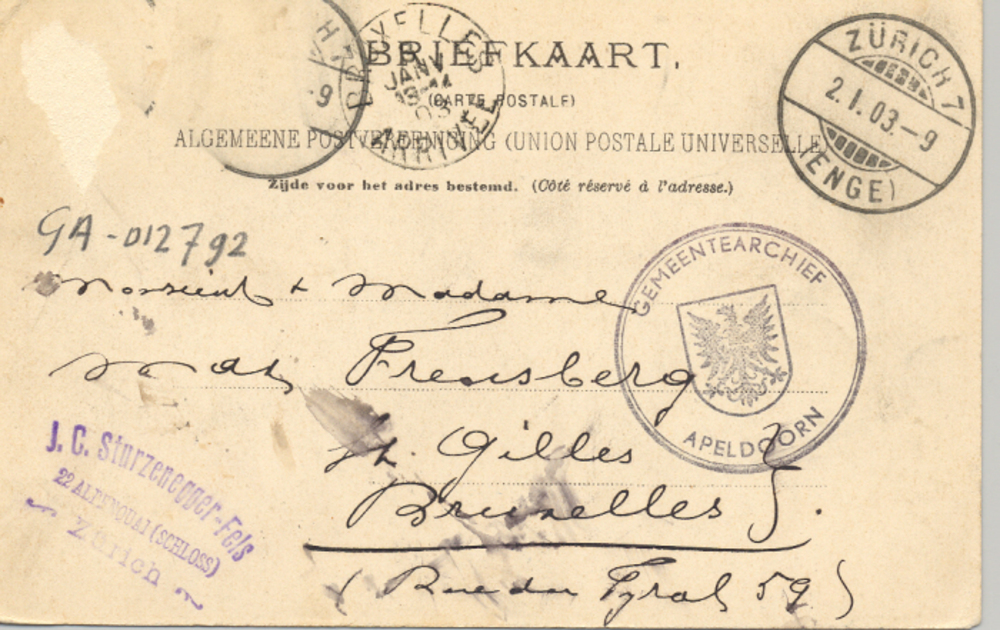 BRIEFKAART.
(CARTE POSTALE)
ALGEMEENE POSTVEREENIGING (UNION POSTALE UNIVERSELLE)
Zijde voor het adres bestemd. (Côté réservé à l'adresse.)
BRUXELLES
JANV
03
ARRIVEE
9
ZÜRICH 7
2.I.03.-9
(ENGE)
GA-012792
GEMEENTEARCHIEF
APELDOORN
Monsieur + Madame
Frensberg
St. Gilles
Bruxelles
(Rue du Tyrol 59)
J. C. Sturzenegger-Fels
22 ALPENQUAI (SCHLOSS)
Zürich